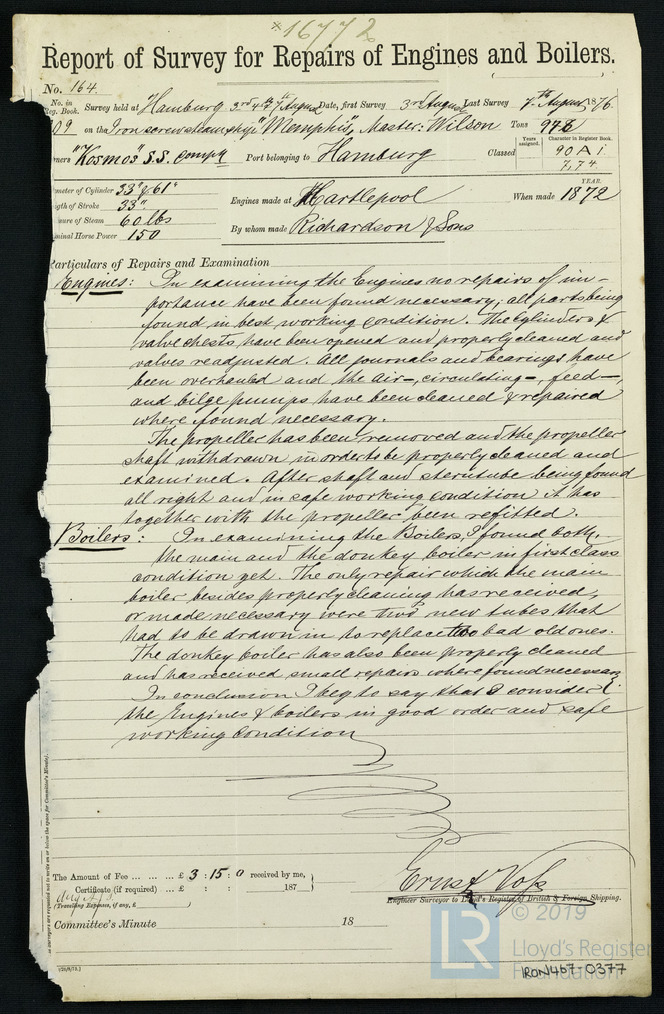 *16772
Report of Survey for Repairs of Engines and Boilers.
No. 164.
No. in Reg. Book. Survey held at Hamburg 3rd 4th 7th August Date, first Survey 3rd August Last Survey 7th August 1876
09 on the Iron screw steamship "Memphis", Master: Wilson Tons 978
ners "Kosmos" S.S. Comph Port belonging to Hamburg Classed Years assigned. Character in Register Book. 90 A 1 7,74
meter of Cylinder 33" & 61"
gth of Stroke 33"
sure of Steam 60 lbs
minal Horse Power 150
Engines made at Hartlepool When made YEAR. 1872
By whom made Richardson & Sons
Particulars of Repairs and Examination
Engines: In examining the Engines no repairs of im-
portance have been found necessary; all parts being
found in best working condition. The Cylinders &
valve chests have been opened and properly cleaned and
valves readjusted. All journals and bearings have
been overhauled and the air-, circulating-, feed-,
and bilge pumps have been cleaned & repaired
where found necessary.
The propeller has been removed and the propeller
shaft withdrawn in order to be properly cleaned and
examined. After shaft and sterntube being found
all right and in safe working condition it has
together with the propeller been refitted.
Boilers: In examining the Boilers, I found both,
the main and the donkey boiler in first class
condition yet. The only repair which the main
boiler besides properly cleaning has received,
or made necessary were two new tubes that
had to be drawn in to replace two bad old ones.
The donkey boiler has also been properly cleaned
and has received small repairs where found necessary
In conclusion I beg to say that I consider
the Engines & boilers in good order and safe
working condition
The Amount of Fee ... ... ... £ 3 : 15 : 0 received by me,
Certificate (if required) ... £ : : 187
(Travelling Expenses, if any, £ )
Ernst Voss
Engineer Surveyor to Lloyd's Register of British & Foreign Shipping.
Committee's Minute 18
LR © 2019
Lloyd's Register
Foundation
IRON467-0377